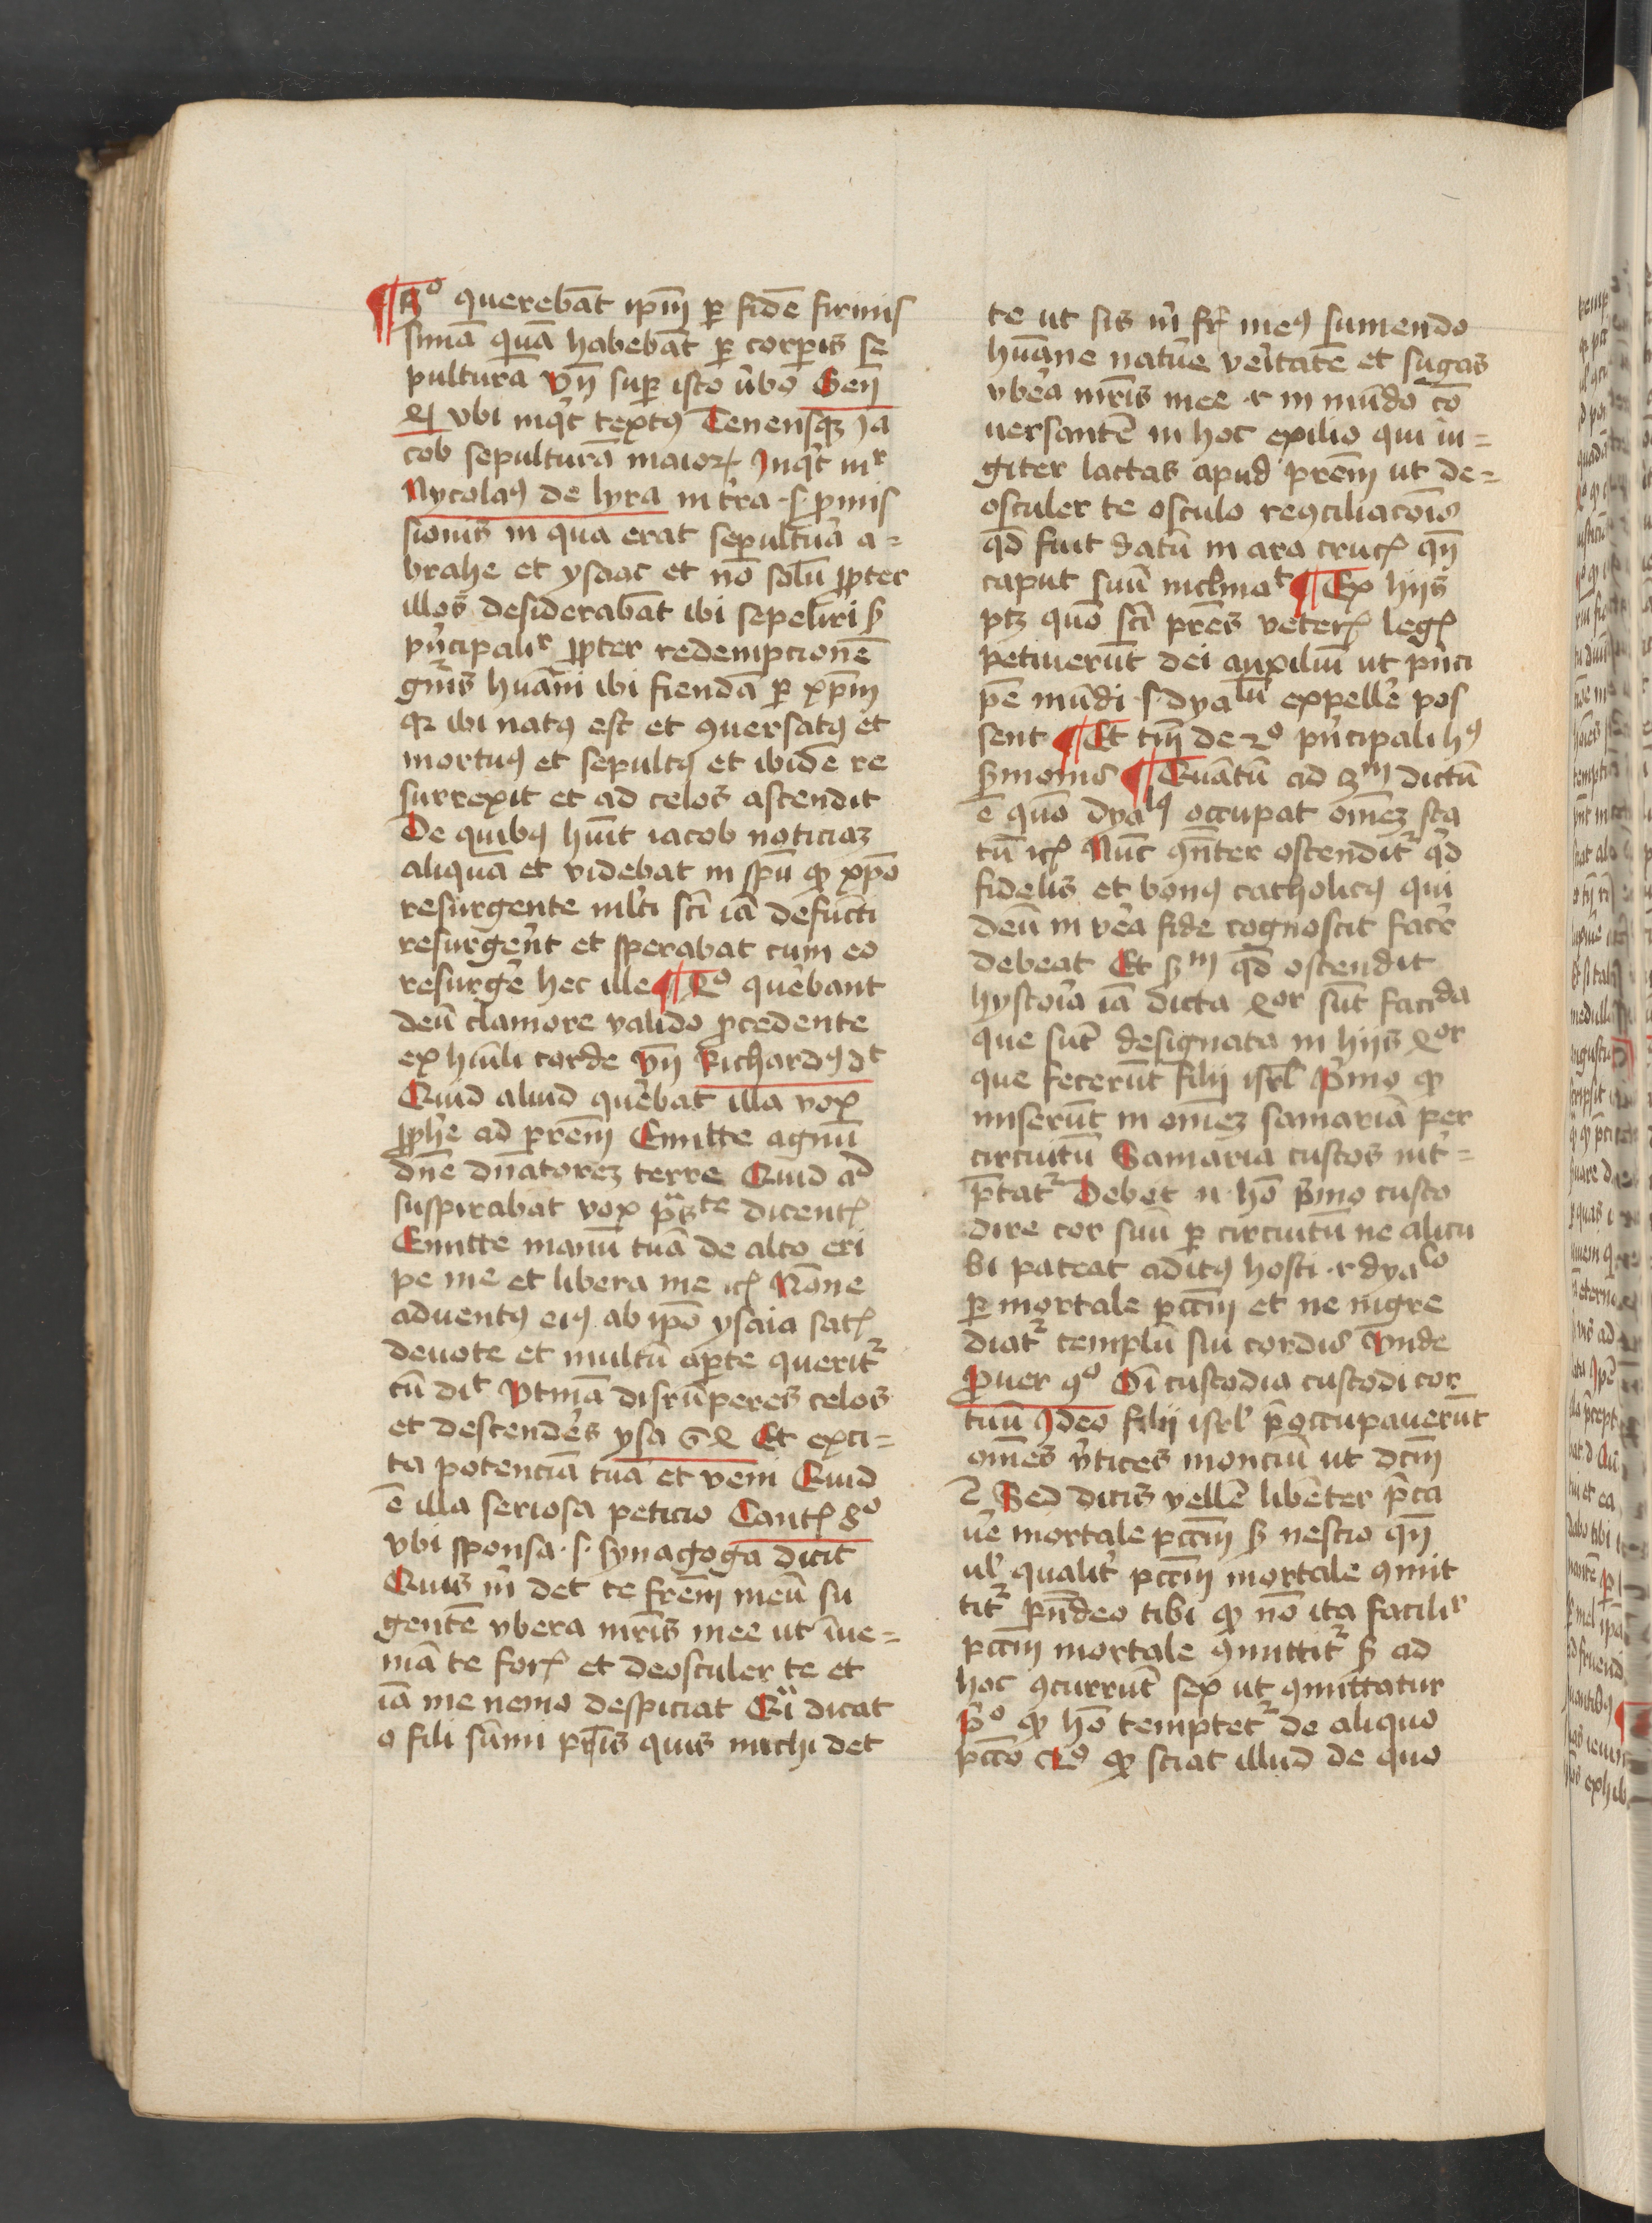 ¶ 3º querebāt ip̄m ꝑ fidē firmis
simā quā habebāt ꝑ corꝑis se
pulturā Vn̄ suꝑ isto v̄bo Gen̄
vbi inqͥt textꝰ Tenensqꝫ Ja
cob sepulturā maioꝝ Jnqͥt mʳ
Nycolaꝰ de lyra in t̄ra .s. ꝓmis
sionis in qua erat sepultura a=
brahe et ysaac et nō solū ꝓpter
illos desiderabāt ibi sepeliri sꝫ
pͥncipaliʳ ꝓpter redempcionē
gn̄is hūani ibi fiendā ꝑ xp̄m
qꝛ ibi natꝰ est et ꝯuersatꝰ et
mortuꝰ et sepultꝰ et ibidē re
surrexit et ad celos ascendit
De quibꝰ hūit iacob noticiaꝫ
aliquā et videbat in sp̄u ꝙ xp̄o
resurgente ml̄ti sc̄i iā defūcti
resurgēnt et sperabat cum eo
resurge᷑ hec ille ¶ 4º que᷑bant
deū clamore valido ꝓcedente
ex hūili corde Vn̄ Richardꝰ dᵗ
Quid aliud que᷑bat illa vox
ꝓph̄e ad pr̄em Emitte agnū
dn̄e dn̄atoreꝫ terre Quid aᵈ
suspirabat vox ps̄ᵗᵉ dicentꝭ
Emitte manū tuā de alto eri
pe me et libera me ꝛcꝭ Nōne
aduentꝰ eiꝰ ab ip̄o ysaia satꝭ
deuote et multū aꝑte queritᷣ
cū diᵗ Vtinā disrūperes celos
et descende᷑s ysa 64 Et exci=
ta potenciā tuā et veni Quid
ē illa seriosa peticio Cantꝭ 8º
vbi sponsa .s. synagoga dicit
Quis m̄ det te fr̄em meū su
gentē vbera mr̄is mee ut īue=
niā te forꝭ et deosculer te et
iā me nemo despiciat Qͣi dicat
o fili sūmi pr̄is quis michi det
te ut sis m̄ fr̄ meꝰ sumendo
hūane natu᷑e veritatē et sugas
vbe᷑a mr̄is mee ⁊ in mūdo cō
uersantē in hoc exilio qui iu=
giter lactas apud pr̄em ut de=
osculer te osculo reꝯciliacōis
qd̄ fuit datū in ara crucꝭ qn̄
caput suū inclinaᵗ ¶ Ex hijs
ptꝫ quō sc̄i pr̄es veterꝭ legꝭ
petiuerūt dei auxiliū ut pͥnci
pē mūdi .s. dyaˡū expelle᷑ pos
sent ¶ Et tm̄ de 2º pͥncipali hꝰ
sͬmonis ¶ Quātū ad 3ᵐ dictū
ē quō dyaˡꝰ occupat om̄eꝫ sta
tū ꝛcꝭ Nūc ꝯn̄ter ostenditᷣ qͥd
fidelis et bonꝰ catholicꝰ qui
deū in ve᷑a fide cognoscit face᷑
debeat Et sᷣm qd̄ ostendit
hystoīa iā dicta 4or sūt faciᵈᵃ
que sūt designata in hijs 4or
que fecerūt filij isrl̄ Pͥmo ꝙ
miserūt in om̄eꝫ samariā per
circuitū Samaria custos int᷑=
p̄tatᷣ Debet .n. hō pͥmo custo
dire cor suū ꝑ circuitū ne alicu
bi pateat aditꝰ hosti ⁊ dyaˡᵒ
ꝑ mortale pcc̄m et ne ingre
diatᷣ templū sui cordis Vnde
Prouer 4º Om̄i custodia custodi cor
tuū Ideo filij isrl̄ p̄occupauerūt
om̄es v̄tices monciū ut dcm̄
ē Sed dicis vellē libēter p̄ca
ue᷑ mortale pcc̄m sꝫ nescio qn̄
ul̄ qualit᷑ pcc̄m mortale ꝯmit
titᷣ Rn̄deo tibi ꝙ nō ita faciliʳ
pcc̄m mortale ꝯmittitᷣ sꝫ ad
hoc ꝯcurrūt sex ut ꝯmittatur
Pº ꝙ hō temptetᷣ de aliquo
pcc̄o 2º ꝙ sciat illud de quo